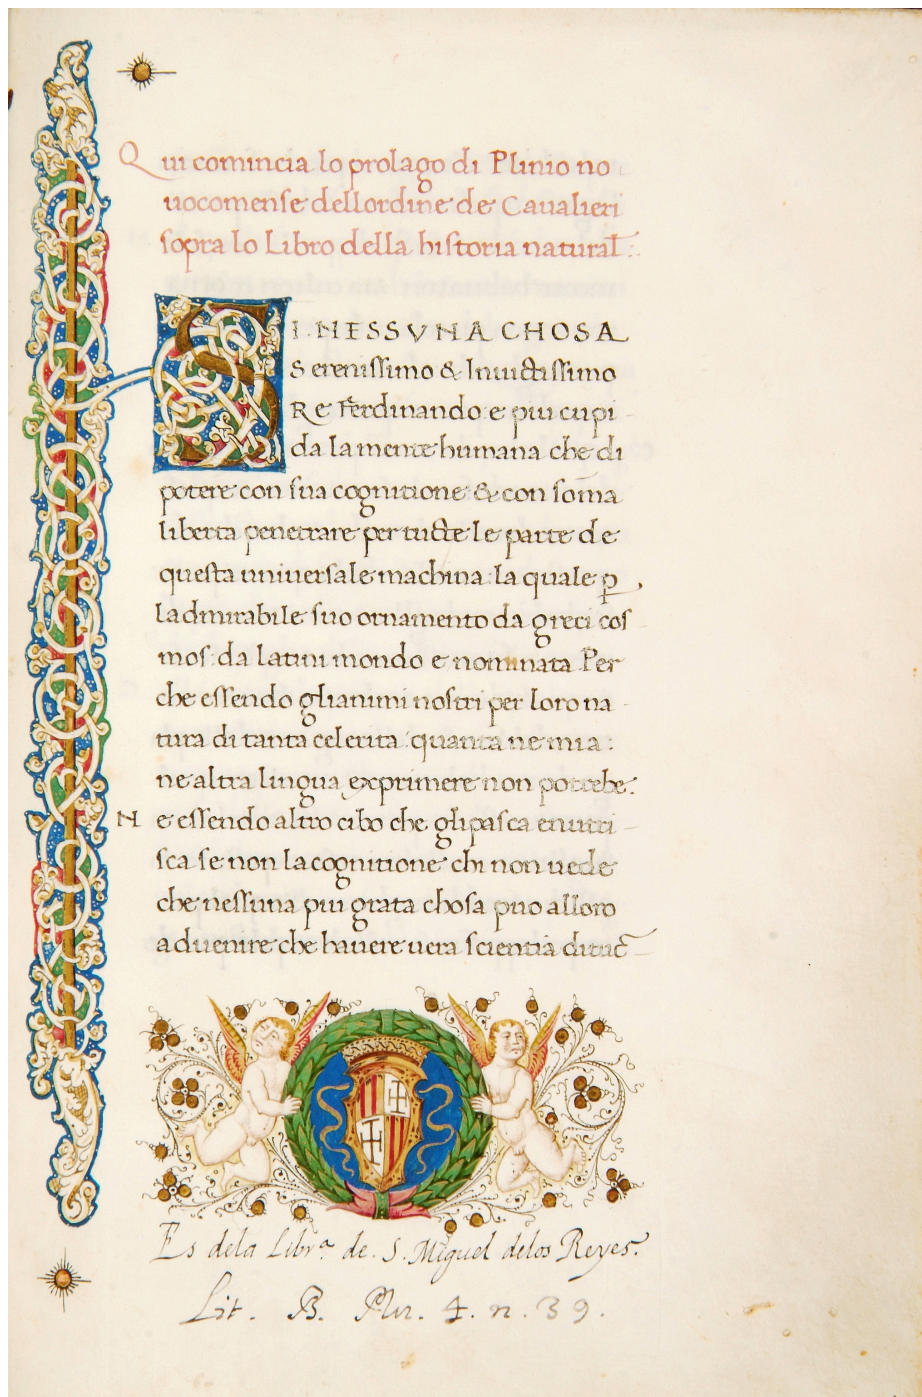 Qui comincia lo prolago di Plinio no
uocomense dellordine de Caualieri
sopra lo Libro della historia natural:.
SI NESSVNA CHOSA
Serenissimo & Inuictissimo
Re Ferdinando: e piu cupi
da la mente humana che di
potere con sua cognitione & con soma
liberta penetrare per tucte le parte de
questa uniuersale machina: la quale p
ladmirabile suo ornamento da greci cos
mos: da latini mondo e nominata Per
che essendo glianimi nostri per loro na
tura di tanta celerita: quanta ne mia:
ne altra lingua exprimere non potrebe:
Ne essendo altro cibo che gli pasca enutri
sca se non la cognitione chi non uede
che nessuna piu grata chosa puo alloro
aduenire che hauere uera scientia di tuct
Es dela Libr.ª de. S. Miguel delos Reyes.
Lit. B. Plu. 4. n. 39.